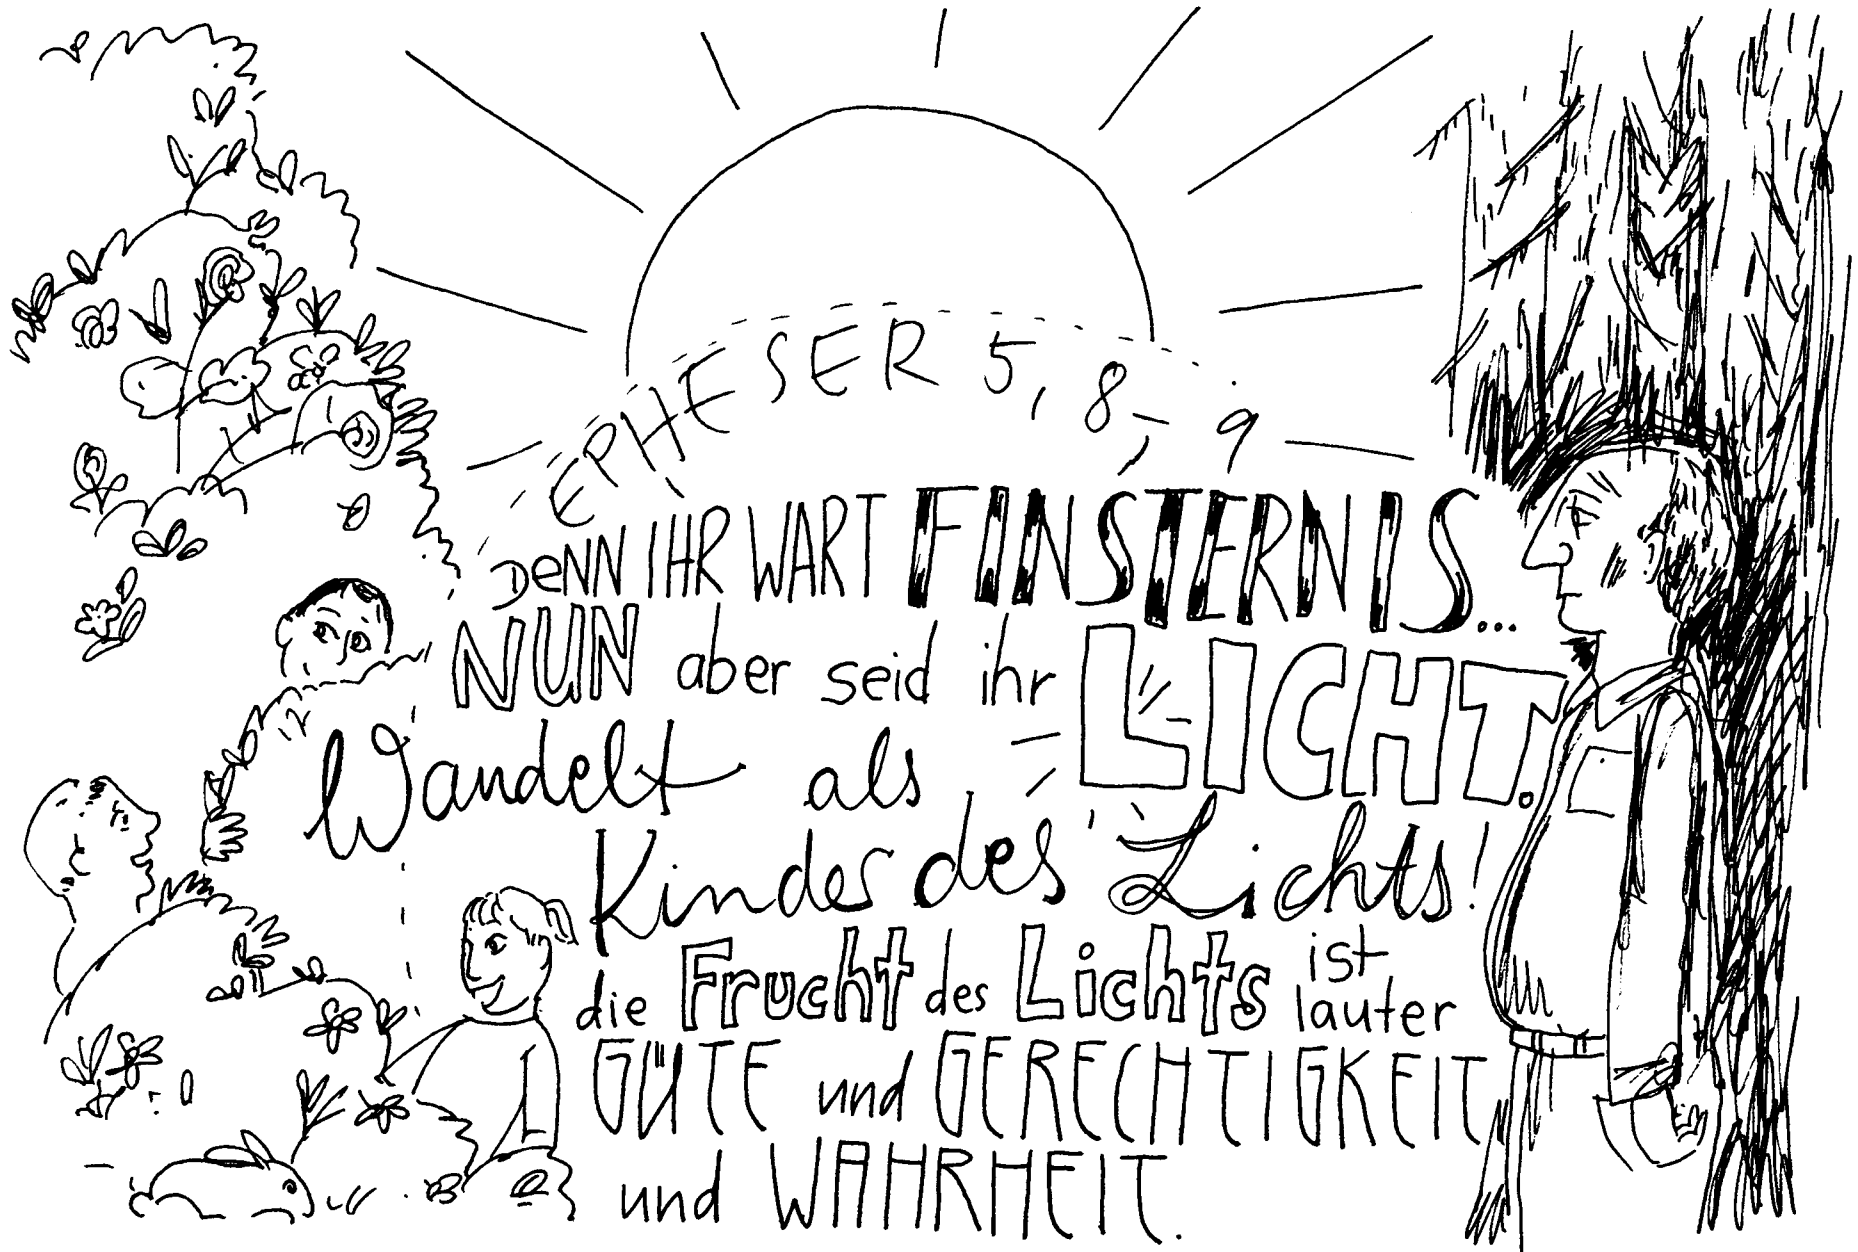 EPHESER 5, 8-9
DENN IHR WART FINSTERNIS...
NUN aber seid ihr LICHT.
Wandelt als
Kinder des Lichts!
die Frucht des Lichts ist
lauter
GÜTE und GERECHTIGKEIT
und WAHRHEIT.